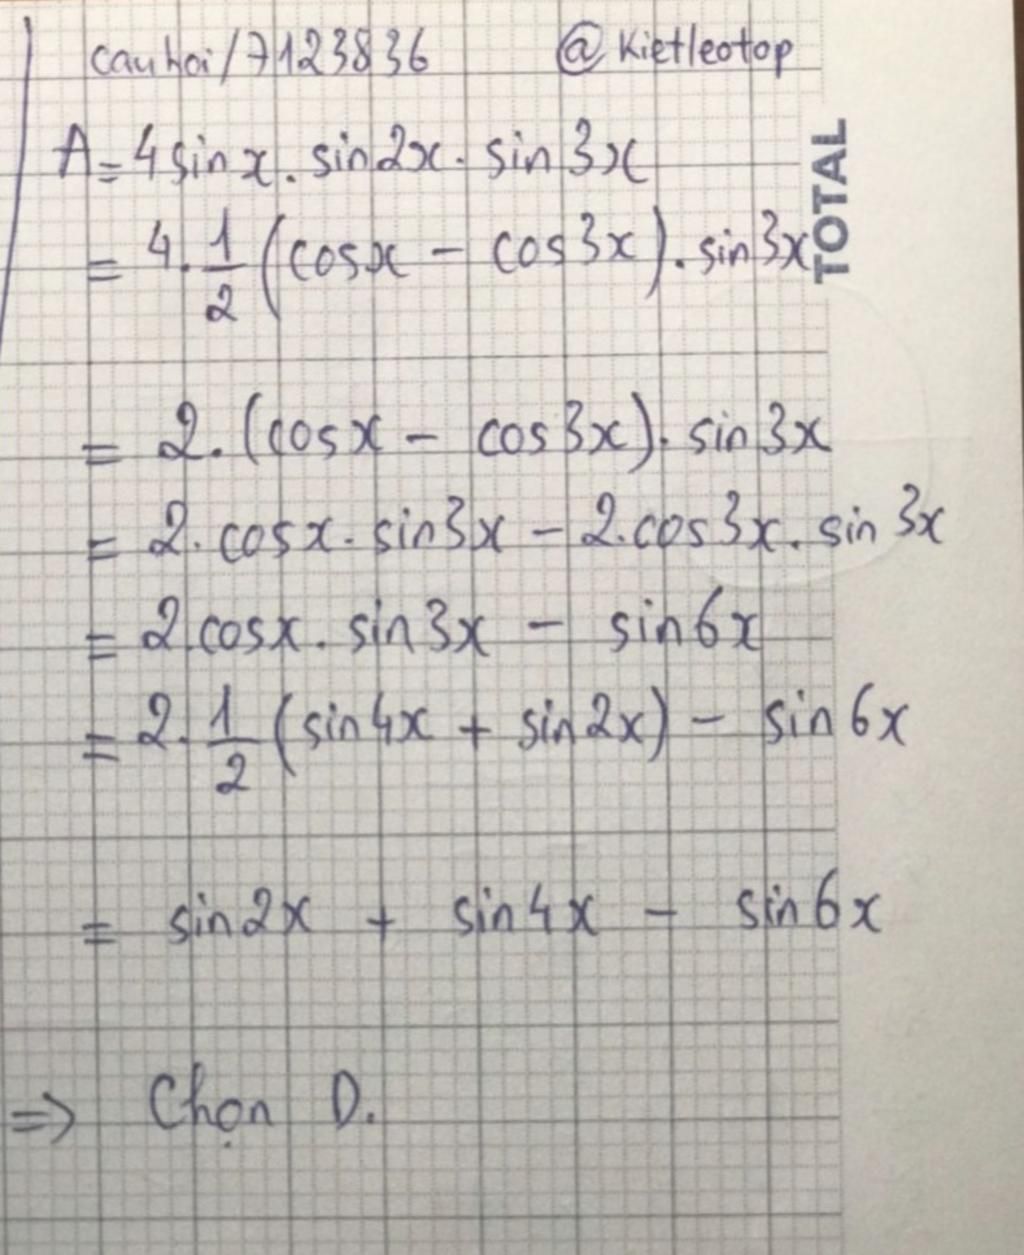 cauhoi/7123836 @Kietleotop
A = 4 sin x . sin 2x . sin 3x
= 4 . 1/2 (cos x - cos 3x) . sin 3x
TOTAL
= 2 . (cos x - cos 3x) . sin 3x
= 2 . cos x . sin 3x - 2 . cos 3x . sin 3x
= 2 cos x . sin 3x - sin 6x
= 2 . 1/2 (sin 4x + sin 2x) - sin 6x
= sin 2x + sin 4x - sin 6x
=> Chọn D.